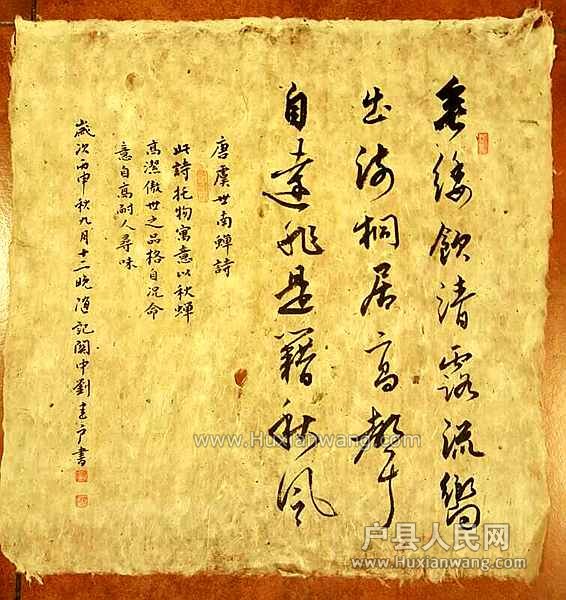 垂緌飲清露流響
出疏桐居高聲
自遠非是籍秋風
唐虞世南蟬詩
此詩托物寓意以秋蟬
高潔傲世之品格自況命
意自高耐人尋味
歲次丙申秋九月十二晚隨記關中劉書
www.Huxianwang.com
户县人民网
www.Huxianwang.com